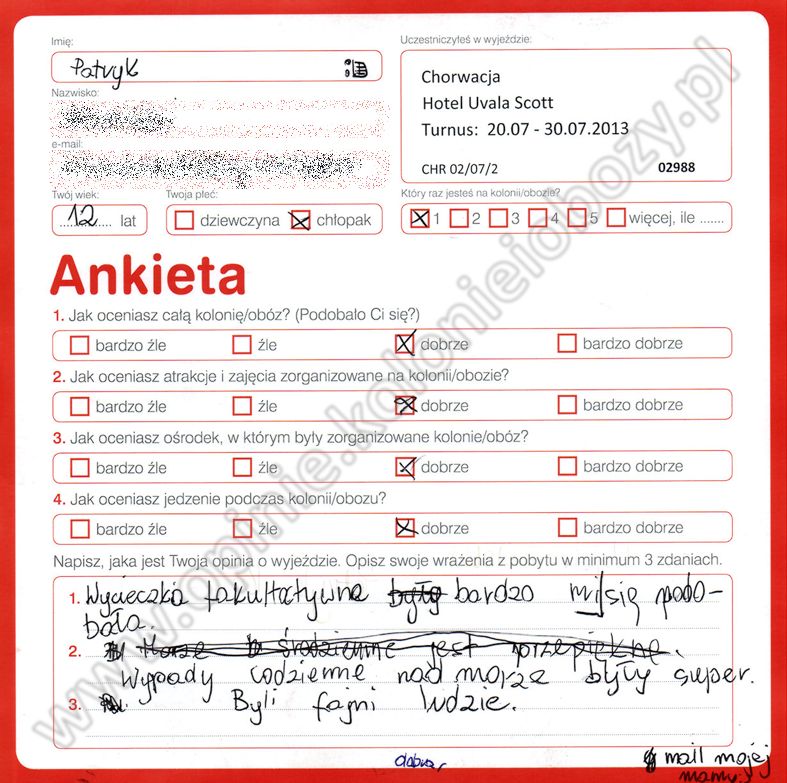 Imię:
Patryk
Uczestniczyłeś w wyjeździe:
Chorwacja
Hotel Uvala Scott
Turnus: 20.07 - 30.07.2013
CHR 02/07/2 02988
Nazwisko:
e-mail:
Twój wiek:
12 lat
Twoja płeć:
dziewczyna chłopak
Który raz jesteś na kolonii/obozie?
1 2 3 4 5 więcej, ile .......
Ankieta
1. Jak oceniasz całą kolonię/obóz? (Podobało Ci się?)
bardzo źle źle dobrze bardzo dobrze
2. Jak oceniasz atrakcje i zajęcia zorganizowane na kolonii/obozie?
bardzo źle źle dobrze bardzo dobrze
3. Jak oceniasz ośrodek, w którym były zorganizowane kolonie/obóz?
bardzo źle źle dobrze bardzo dobrze
4. Jak oceniasz jedzenie podczas kolonii/obozu?
bardzo źle źle dobrze bardzo dobrze
Napisz, jaka jest Twoja opinia o wyjeździe. Opisz swoje wrażenia z pobytu w minimum 3 zdaniach.
1. Wycieczka fakultatywna była bardzo mi się podo-
bała.
2. Morze śródziemne jest przepiękne.
Wypady codzienne nad morze były super.
3. Byli fajni ludzie.
mail mojej
mamy
www.opinie.kolonieiobozy.pl